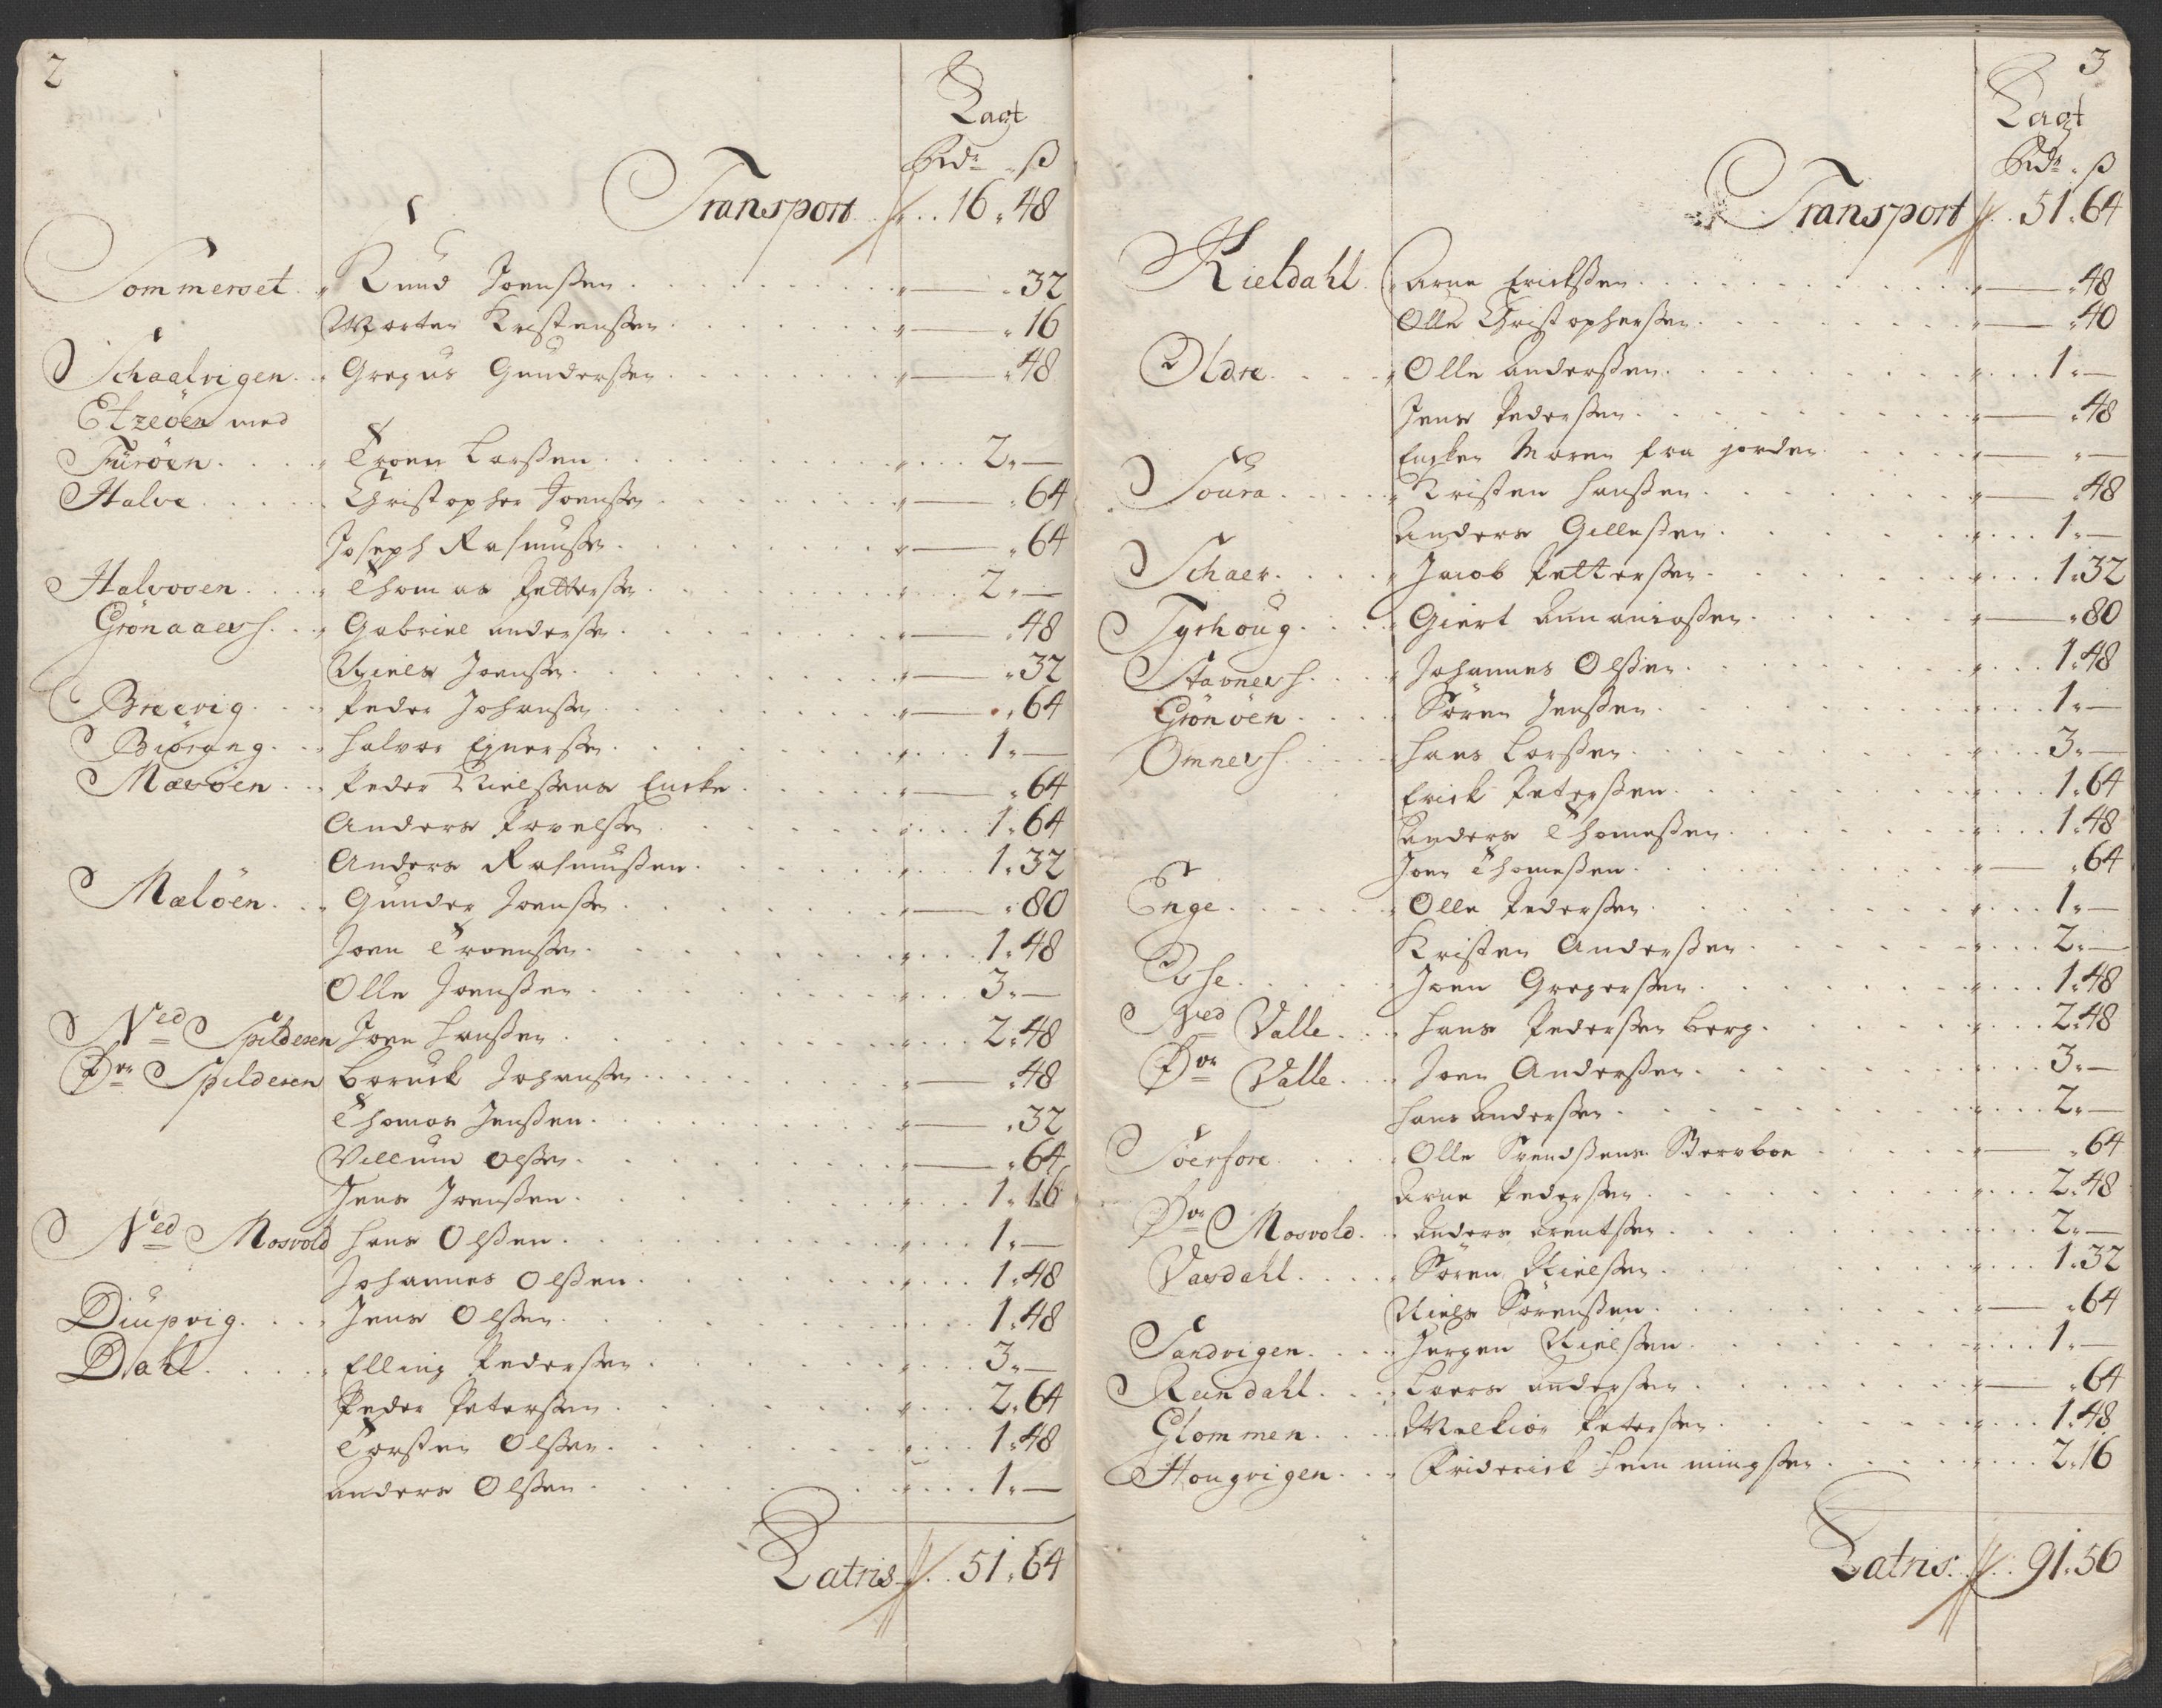 2
Lagt
Rdr ß
Transport 16 48
Sommerset Knud Joenßen 32
Morten Kristenßen 16
Schaalvigen Gregus Gunderßen 48
Etzeöen med
Furöen Troen Larßen 2 —
Halve Christopher Joenßen 64
Joseph Rasmusßen 64
Halvosen Thomas Petterßen 2 —
Grönaaesh Gabriel Anderßen 48
Niels Joenßen 32
Breevig Peder Johanßen 64
Biörang Halvor Ejnerßen 1 —
Mæsöen Peder Nielßens Encke 64
Anders Povelßen 1 64
Anders Rasmußen 1 32
Mælöen Gunder Joenßen 80
Joen Troenßen 1 48
Olle Joenßen 3 —
Ned Spildesen Joen Hanßen 2 48
Øvr Spildesen Baruck Johanßen 48
Thomas Jenßen 32
Villum Olßen 64
Jens Joenßen 1 16
Ned Mosvold Hans Olßen 1 —
Johannes Olßen 1 48
Diupvig Jens Olßen 1 48
Dahl Elling Pederßen 3 —
Peder Peterßen 2 64
Torsten Olßen 1 48
Anders Olßen 1 —
Latris 51 64
3
Lagt
Rdr ß
Transport 51 64
Kieldahl Arne Erickßen 48
Olle Christopherßen 40
Oldre Olle Anderßen 1 —
Jens Pederßen 48
Encken Maren fra jorden —
Soura Kristen Hanßen 48
Anders Gilleßen 1 —
Schaer Jacob Petterßen 1 32
Tyrhoug Giert Annaniaßen 80
Stavnesh Johannes Olßen 1 48
Grönöen Sören Jenßen 1 —
Omnesh Hans Larßen 3 —
Erick Peterßen 1 64
Anders Thomeßen 1 48
Joen Thomeßen 64
Enge Olle Pederßen 1 —
Kristen Anderßen 2 —
Joen Gregerßen 1 48
Ned Valle Hans Pederßen Berg 2 48
Øvr Valle Joen Anderßen 3 —
Hans Anderßen 2 —
Söerfore Olle Svendßens Stervboe 64
Arne Pederßen 2 48
Øvr Mosvold Anders Arentßen 2 —
Vasdahl Sören Nielßen 1 32
Niels Sörenßen 64
Sandvigen Jørgen Nielßen 1 —
Reindahl Laers Anderßen 64
Glommen Melkior Peterßen 1 48
Hougvigen Friderick Hemmingßen 2 16
Latris 91 56